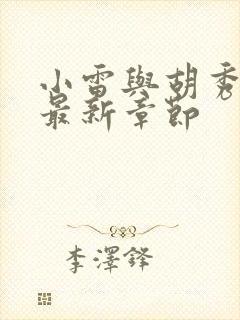 小雷與胡秀
最新章節
李澤鋒